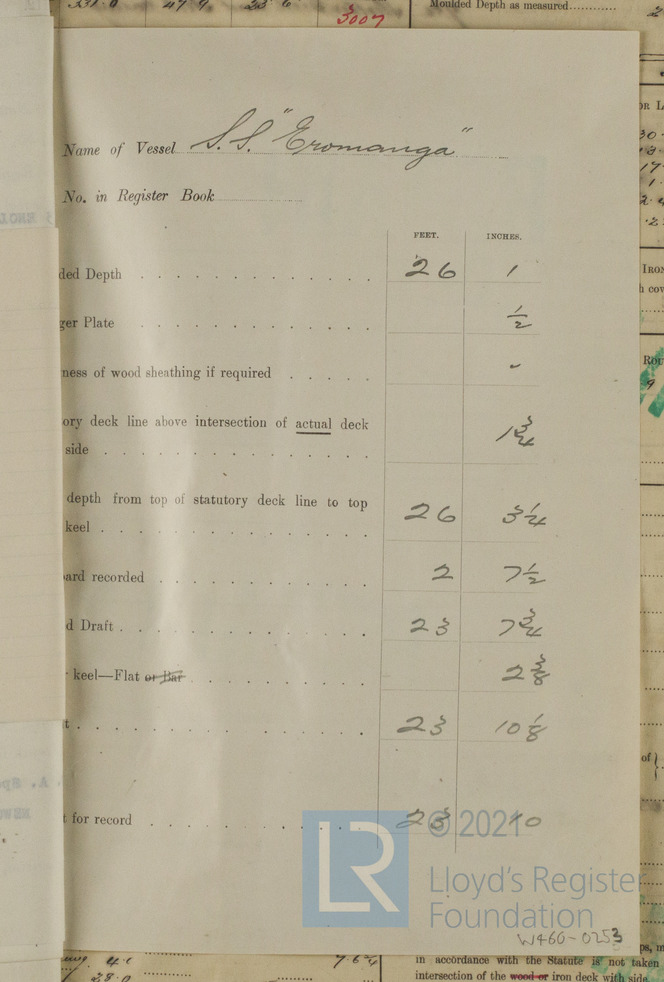 331.0 47.9 23.6
3007
Moulded Depth as measured
Name of Vessel S.S. "Eromanga"
No. in Register Book
FEET. INCHES.
ded Depth 26 1
ger Plate ½
ness of wood sheathing if required
ory deck line above intersection of actual deck
side 1¾
depth from top of statutory deck line to top
keel 26 3¼
ard recorded 2 7½
d Draft 23 7¾
keel—Flat or Bar 2⅜
t 23 10⅛
t for record 23 10
© 2021
LR
Lloyd's Register
Foundation
W460-0253
28.0
7.6¾
in accordance with the Statute is not taken
intersection of the wood or iron deck with side